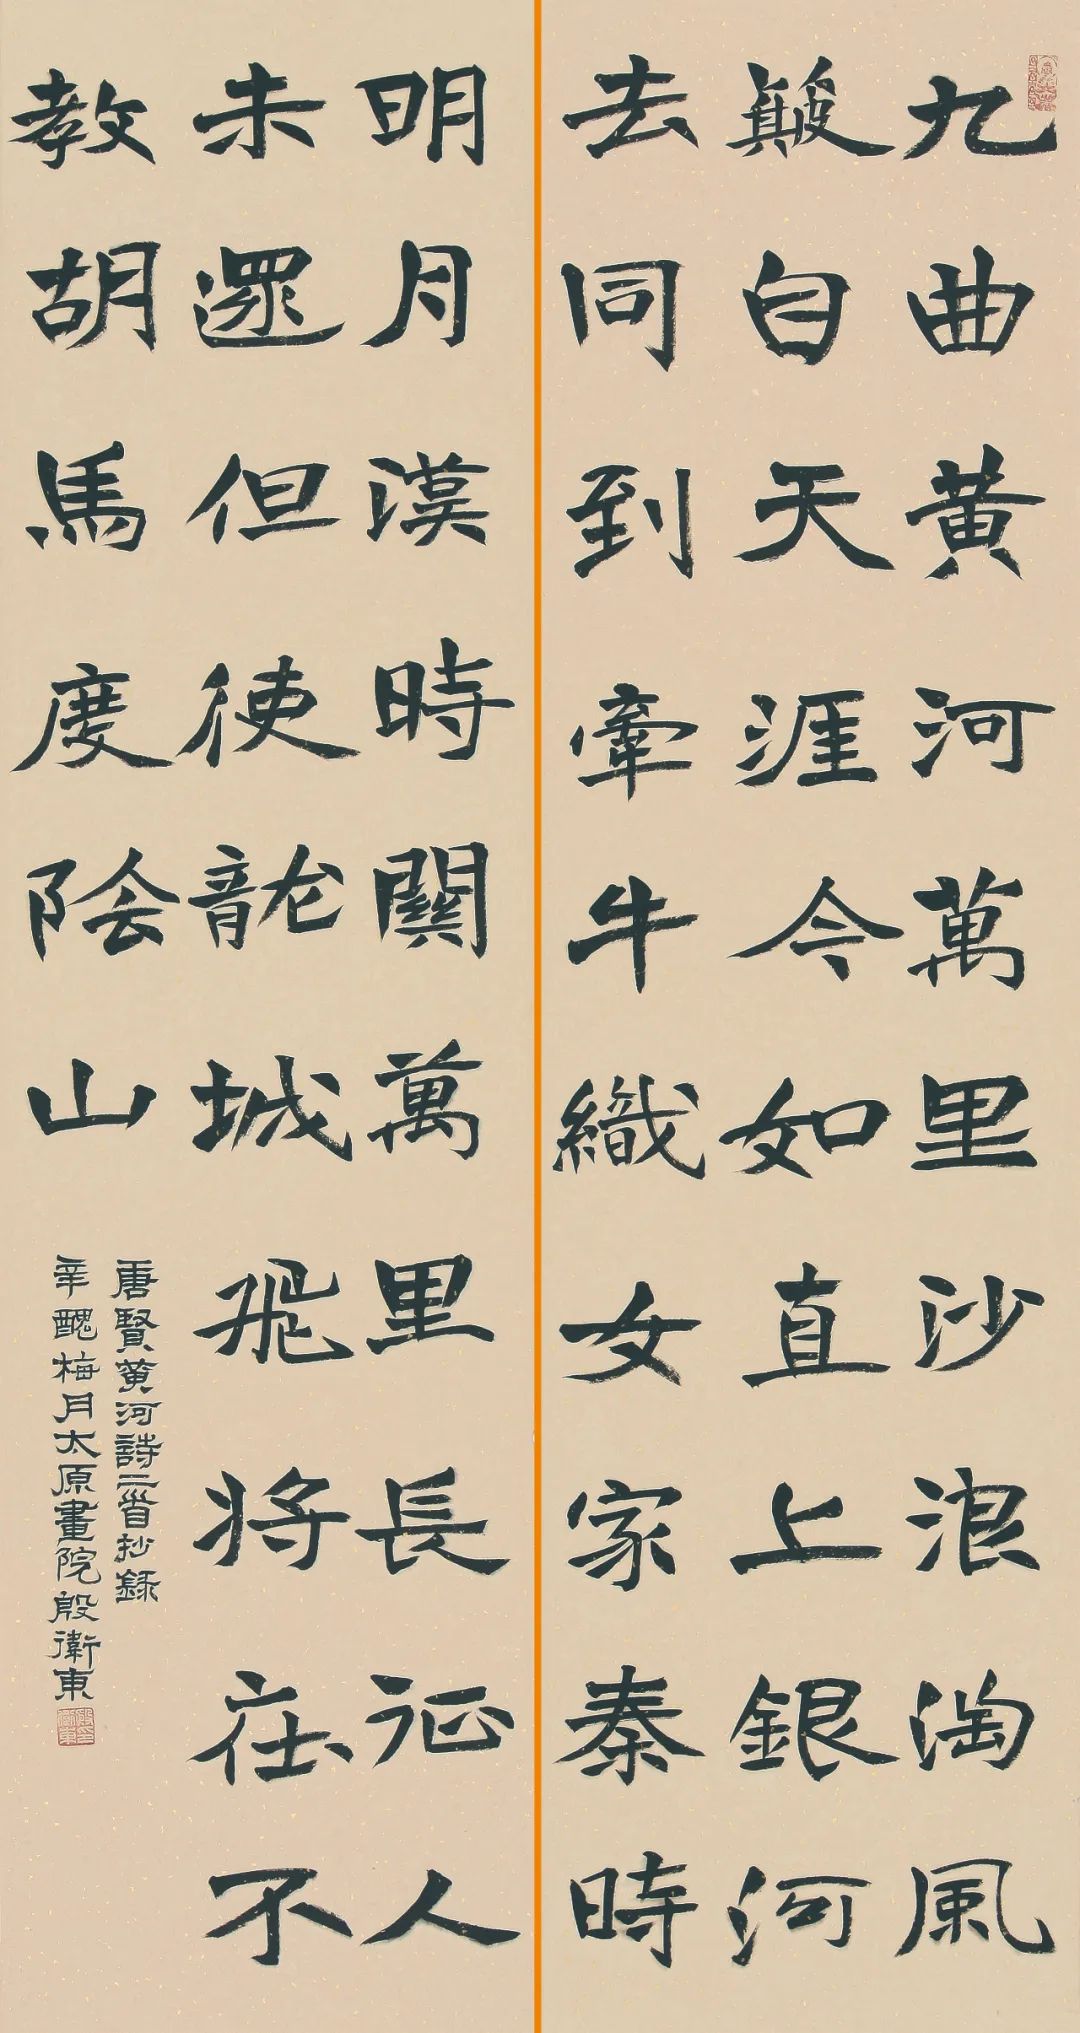 九曲黄河萬里沙浪淘風
簸自天涯今如直上銀河
去同到牽牛織女家秦時
明月漢時關萬里長征人
未還但使龍城飛將在不
教胡馬度陰山
唐賢黄河詩二首抄録
辛醜梅月太原畫院殷衛東